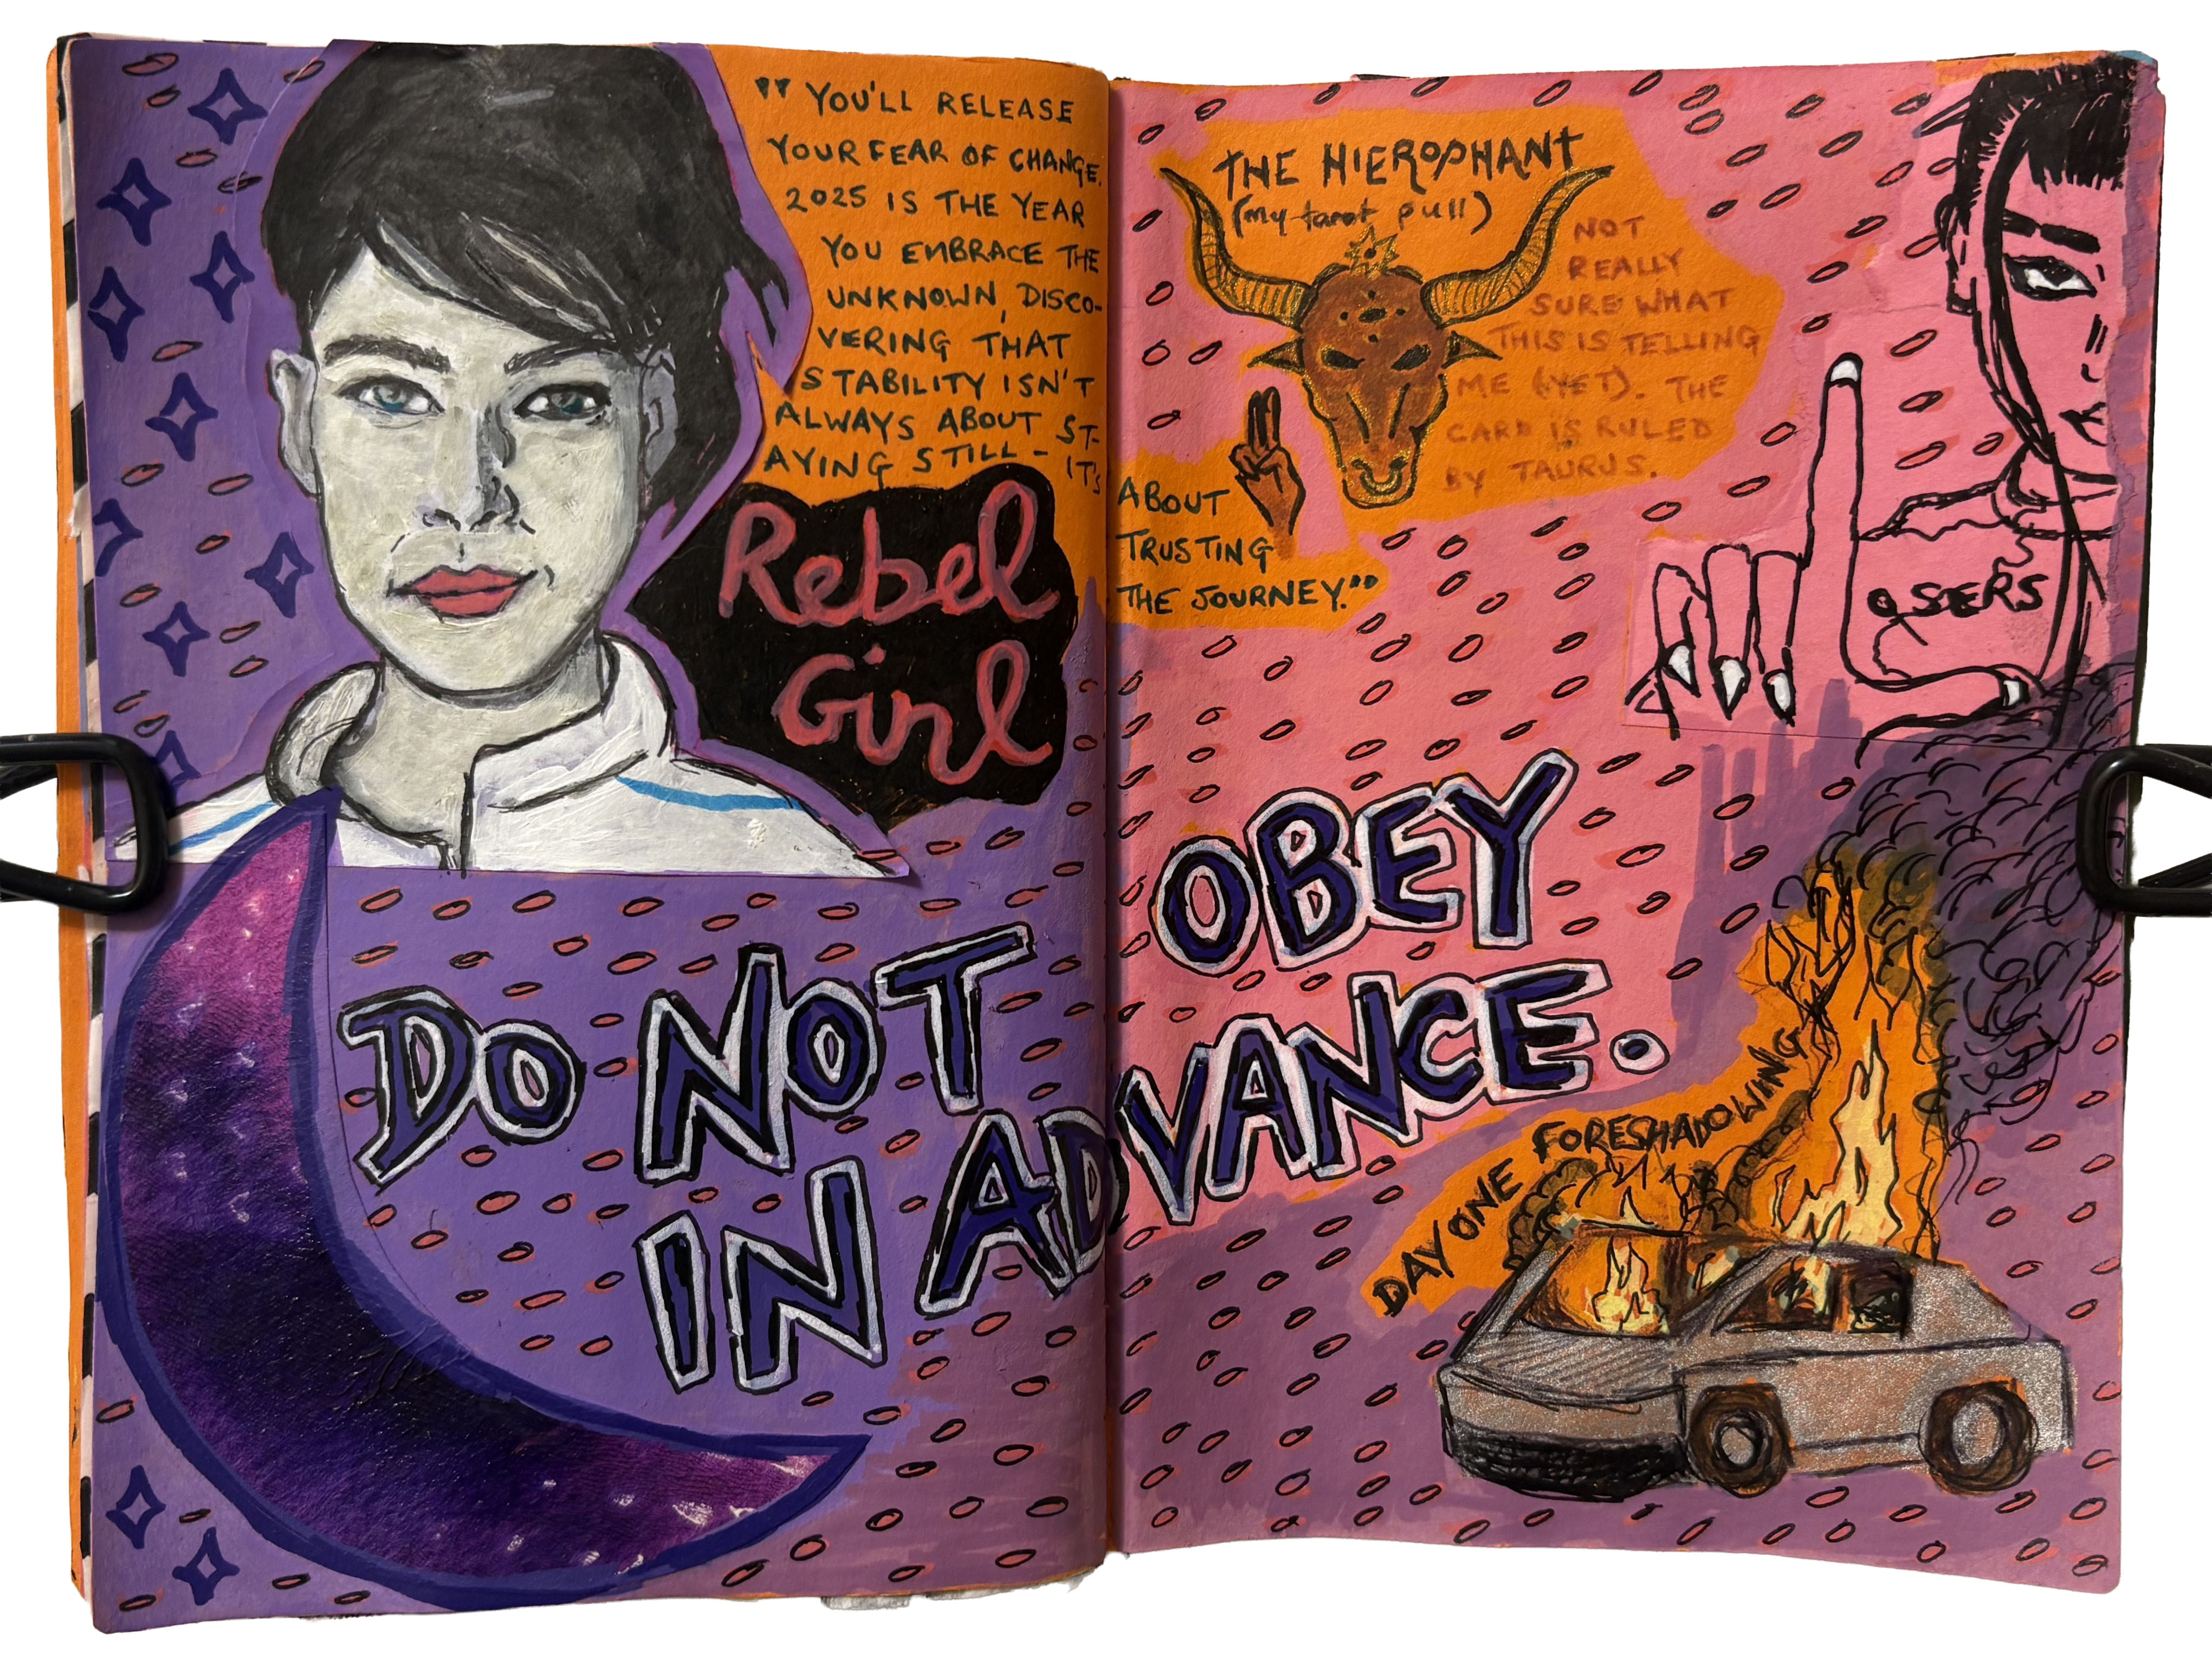 " YOU'LL RELEASE
YOUR FEAR OF CHANGE.
2025 IS THE YEAR
YOU EMBRACE THE
UNKNOWN, DISCO-
VERING THAT
STABILITY ISN'T
ALWAYS ABOUT ST-
AYING STILL - IT'S
ABOUT
TRUSTING
THE JOURNEY."
Rebel
Girl
THE HIEROPHANT
(my tarot pull)
NOT
REALLY
SURE WHAT
THIS IS TELLING
ME (YET). THE
CARD IS RULED
BY TAURUS.
OSERS
DO NOT OBEY
IN ADVANCE.
DAY ONE FORESHADOWING